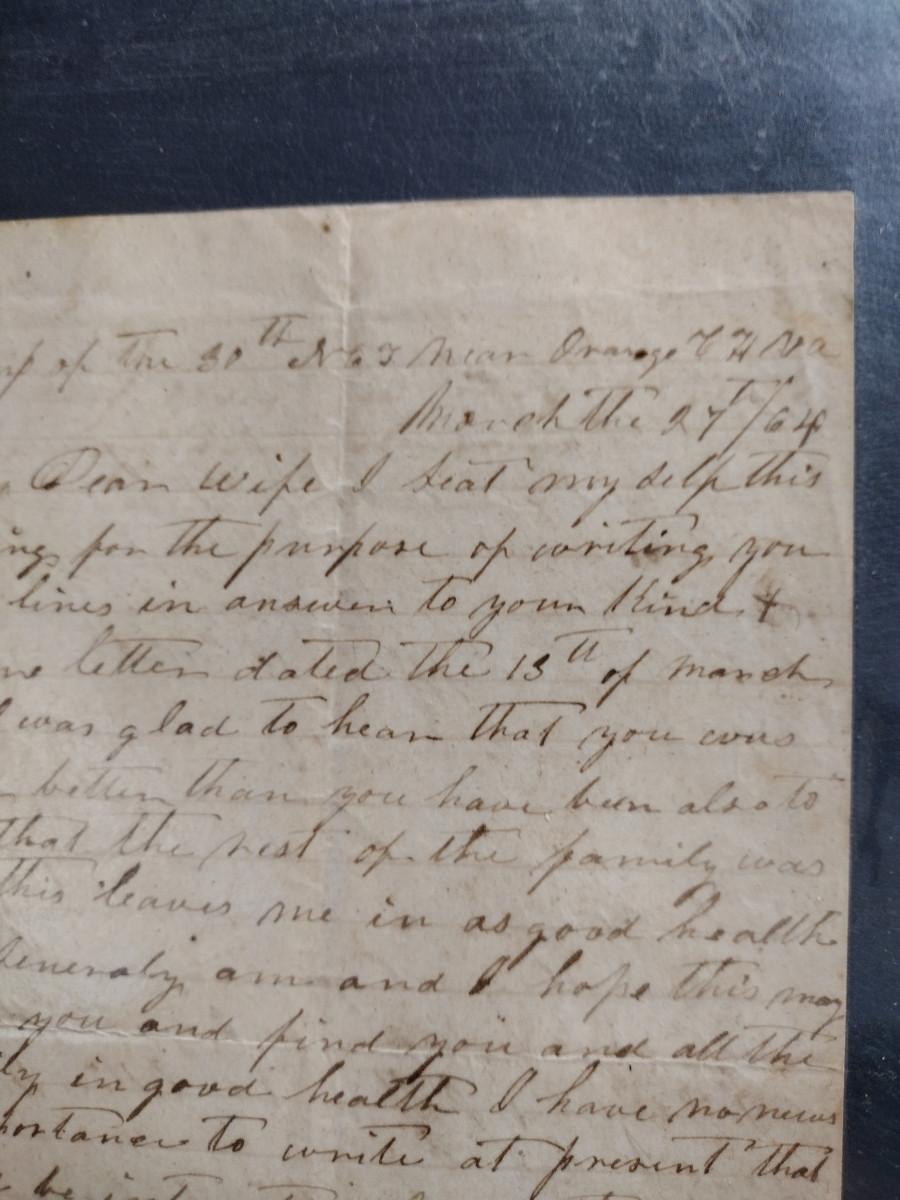 of the 30th N C T Near Orange C H Va
March the 27th/64
Dear Wife I Seat my self this
for the purpose of writing you
lines in answer to your Kind &
letter dated the 13th of march
I was glad to hear that you was
better than you have been also to
that the rest of the family was
this leaves me in as good health
Generaly am and I hope this may
you and find you and all the
in good health I have no news
to write at present that
be